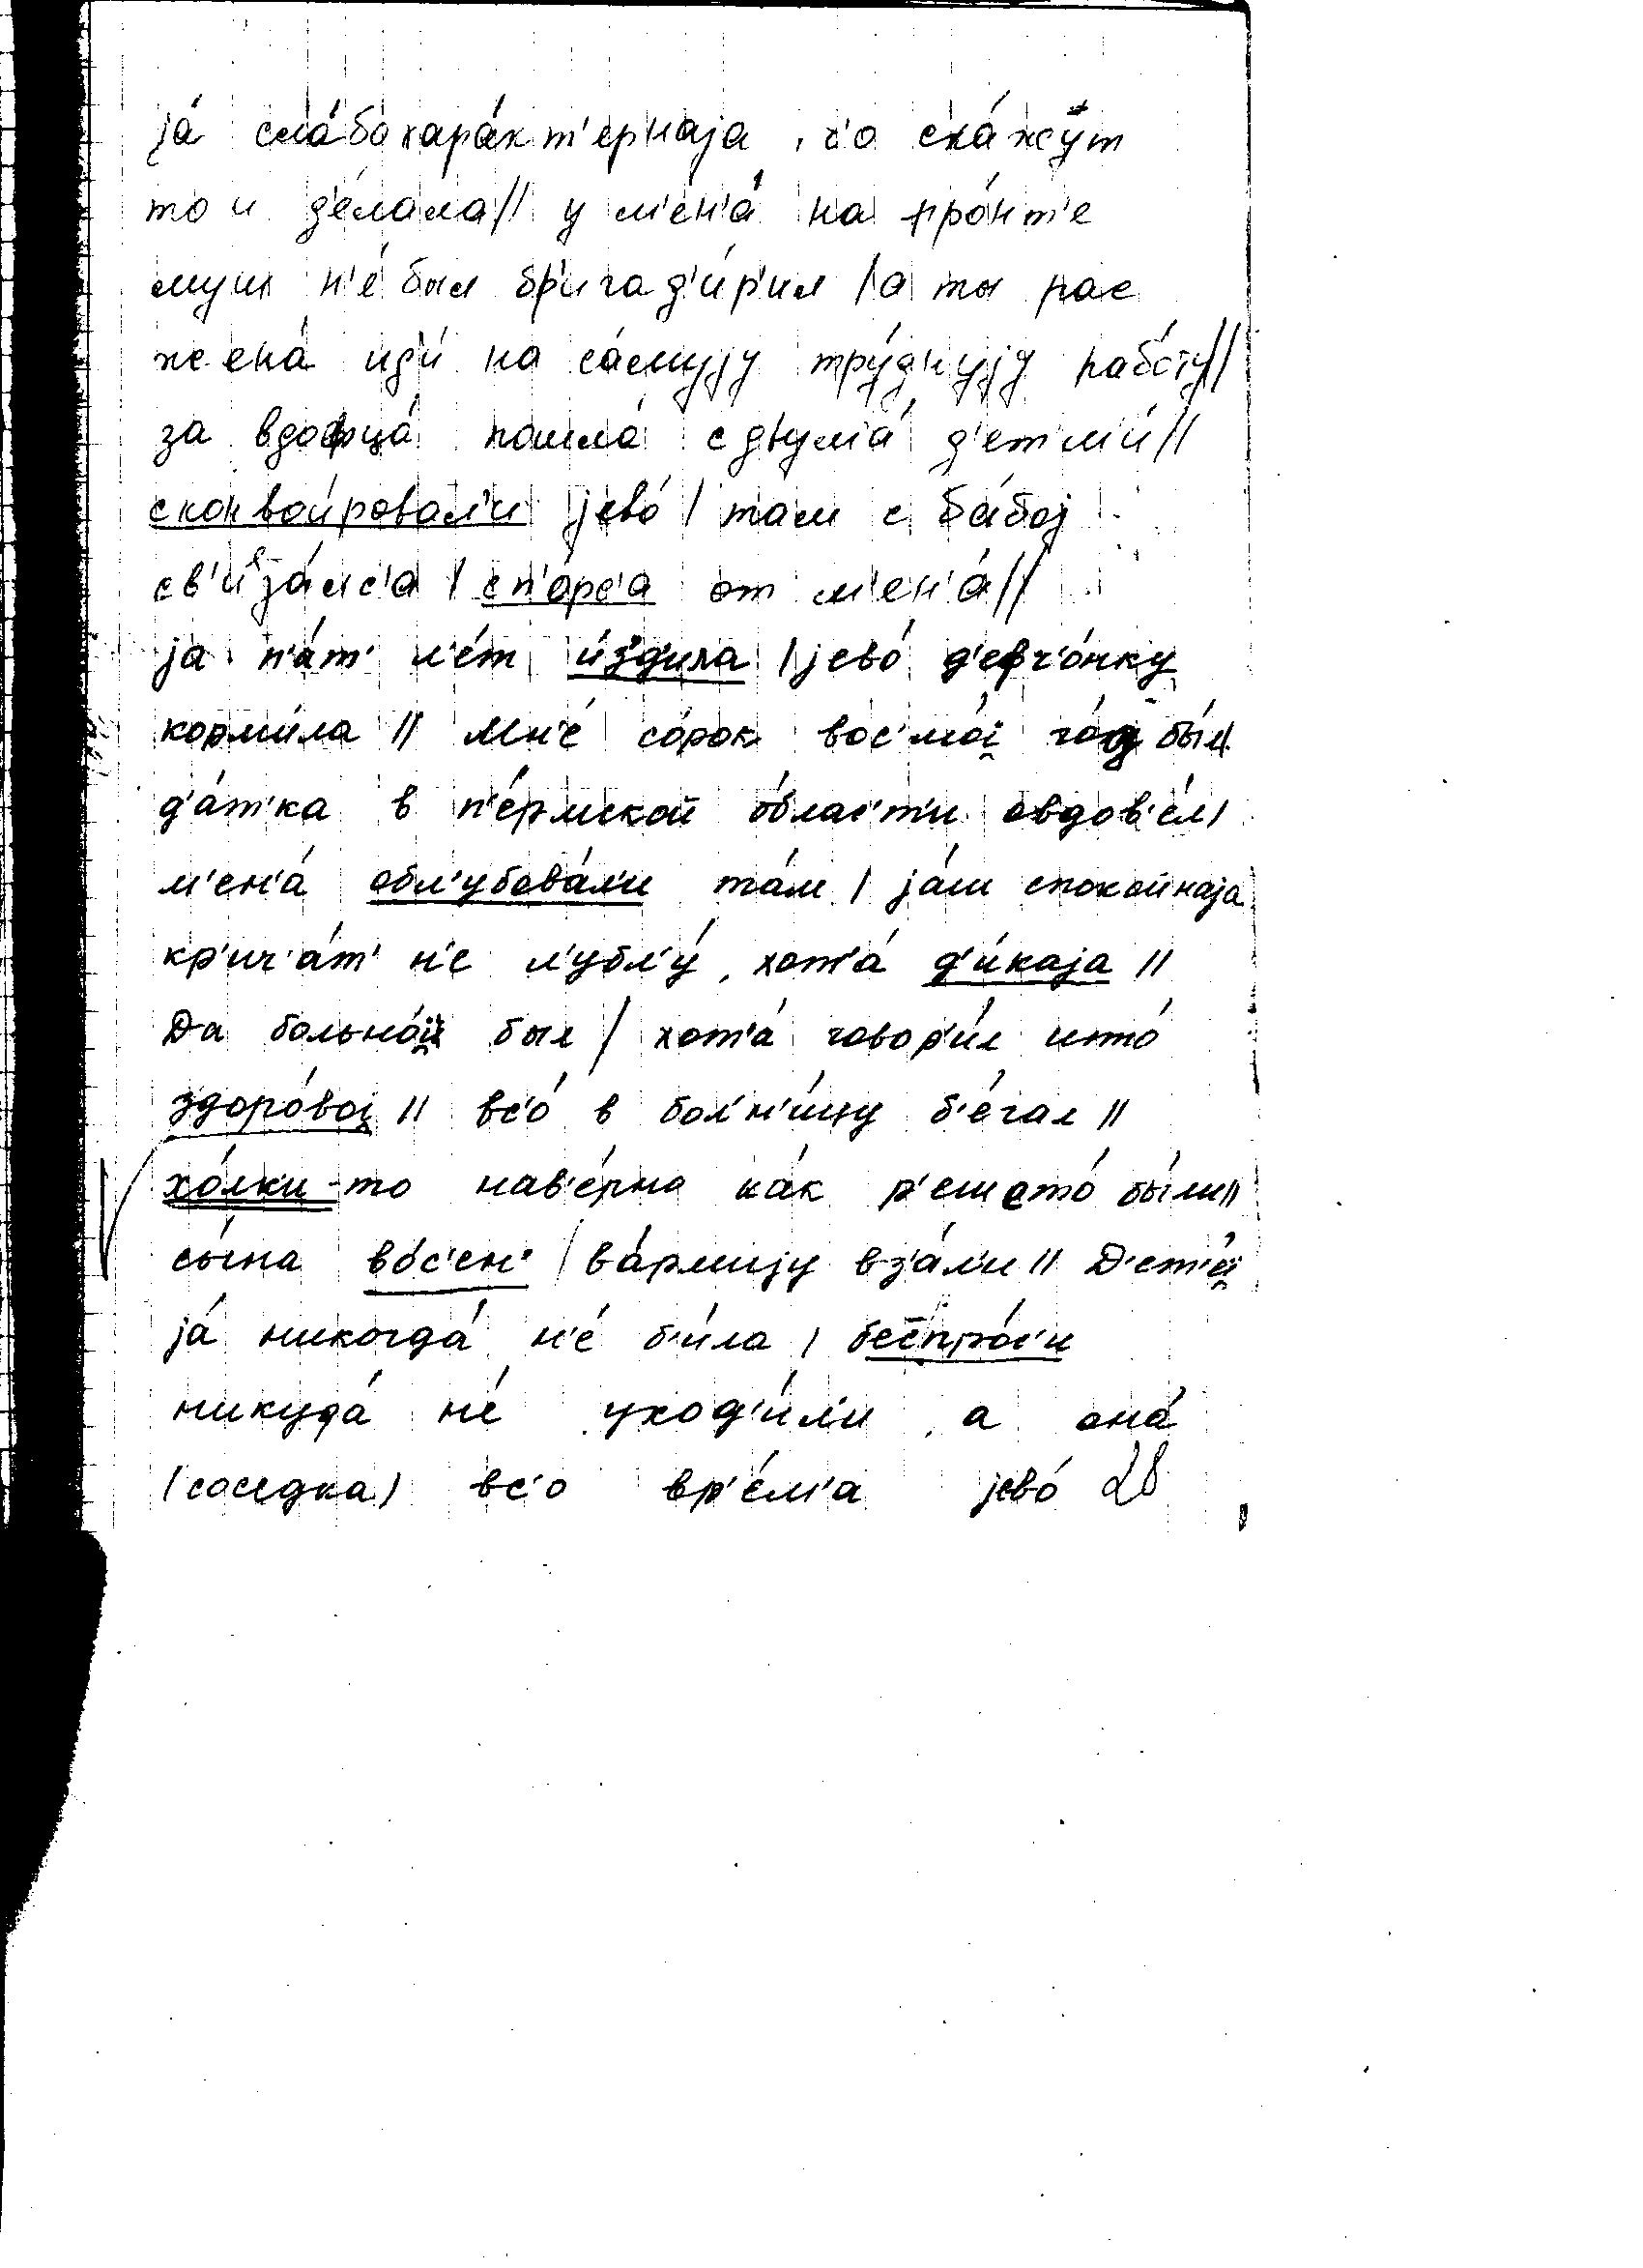 jа́ сла́бохара́кт'ернаjа, ч'о ска́жут
то и д'е́лала // у м'ен'а́ на фро́нт'е
муш н'е́ был бр'игад'и́р'ил / а ты рас
жена́ ид'и́ на са́муjу тру́днуjу рабо́ту //
за вдофца́ пошла́ с двум'а́ д'ет'м'и́ //
сконвои́ровал'и jево́ / там с ба́боj
св'иеза́лс'а / сп'о́рс'а от м'ен'а́ //
jа п'а́т' л'е́т и́зд'ила / jево́ д'ефч'о́нку
корми́ла // Мн'е́ со́рок вос'мо́j го́д бы́л
д'а́т'ка в п'е́рмской о́блас'т'и овдов'е́л /
м'ен'а́ обл'убова́л'и та́м / jа́ш спокойнаjа
кр'ич'а́т' н'е л'убл'у́, хот'а́ д'и́каjа //
Да больно́й был / хот'а́ говор'и́л што́
здоро́воj // вс'о́ в бол'н'и́цу б'е́гал //
хо́лки-то нав'е́рно ка́к р'ешето́ бы́ли //
сы́на во́с'ен' / ва́рмиjу вз'а́л'и // Д'ет'е́j
jа́ никогда́ н'е́ б'и́ла / беспро́с'и
никуда́ н'е́ уход'и́л'и, а она́
(соседка) вс'о вр'е́м'а jево́ 28